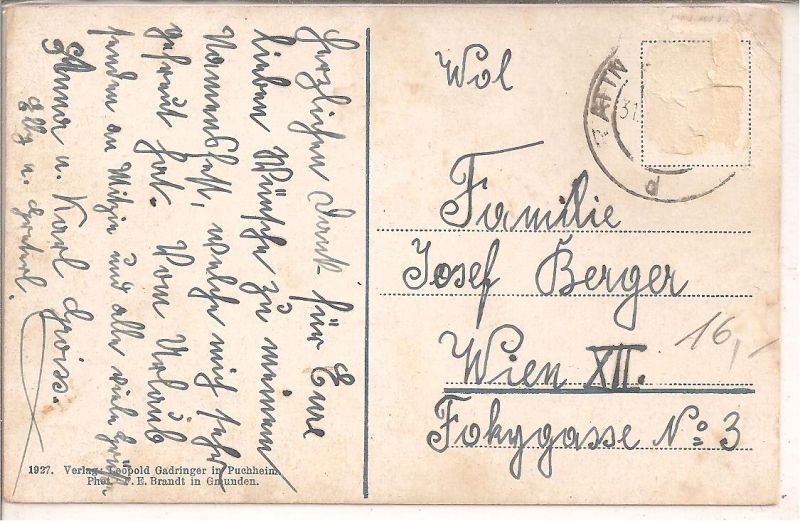 Herzlichen Dank für Eure
lieben Wünsche zu meinem
Namensfest, welche mich sehr
gefreut hat. Vom Urlaub
senden an Mitzi und alle viele Grüße
Anna u. Karl
u. Greterl.
Wol
Familie
Josef Berger
Wien XII.
Fokygasse No 3
16,-
ATTN
31.
d
1927. Verlag: Leopold Gadringer in Puchheim.
Phot. F. E. Brandt in Gmunden.